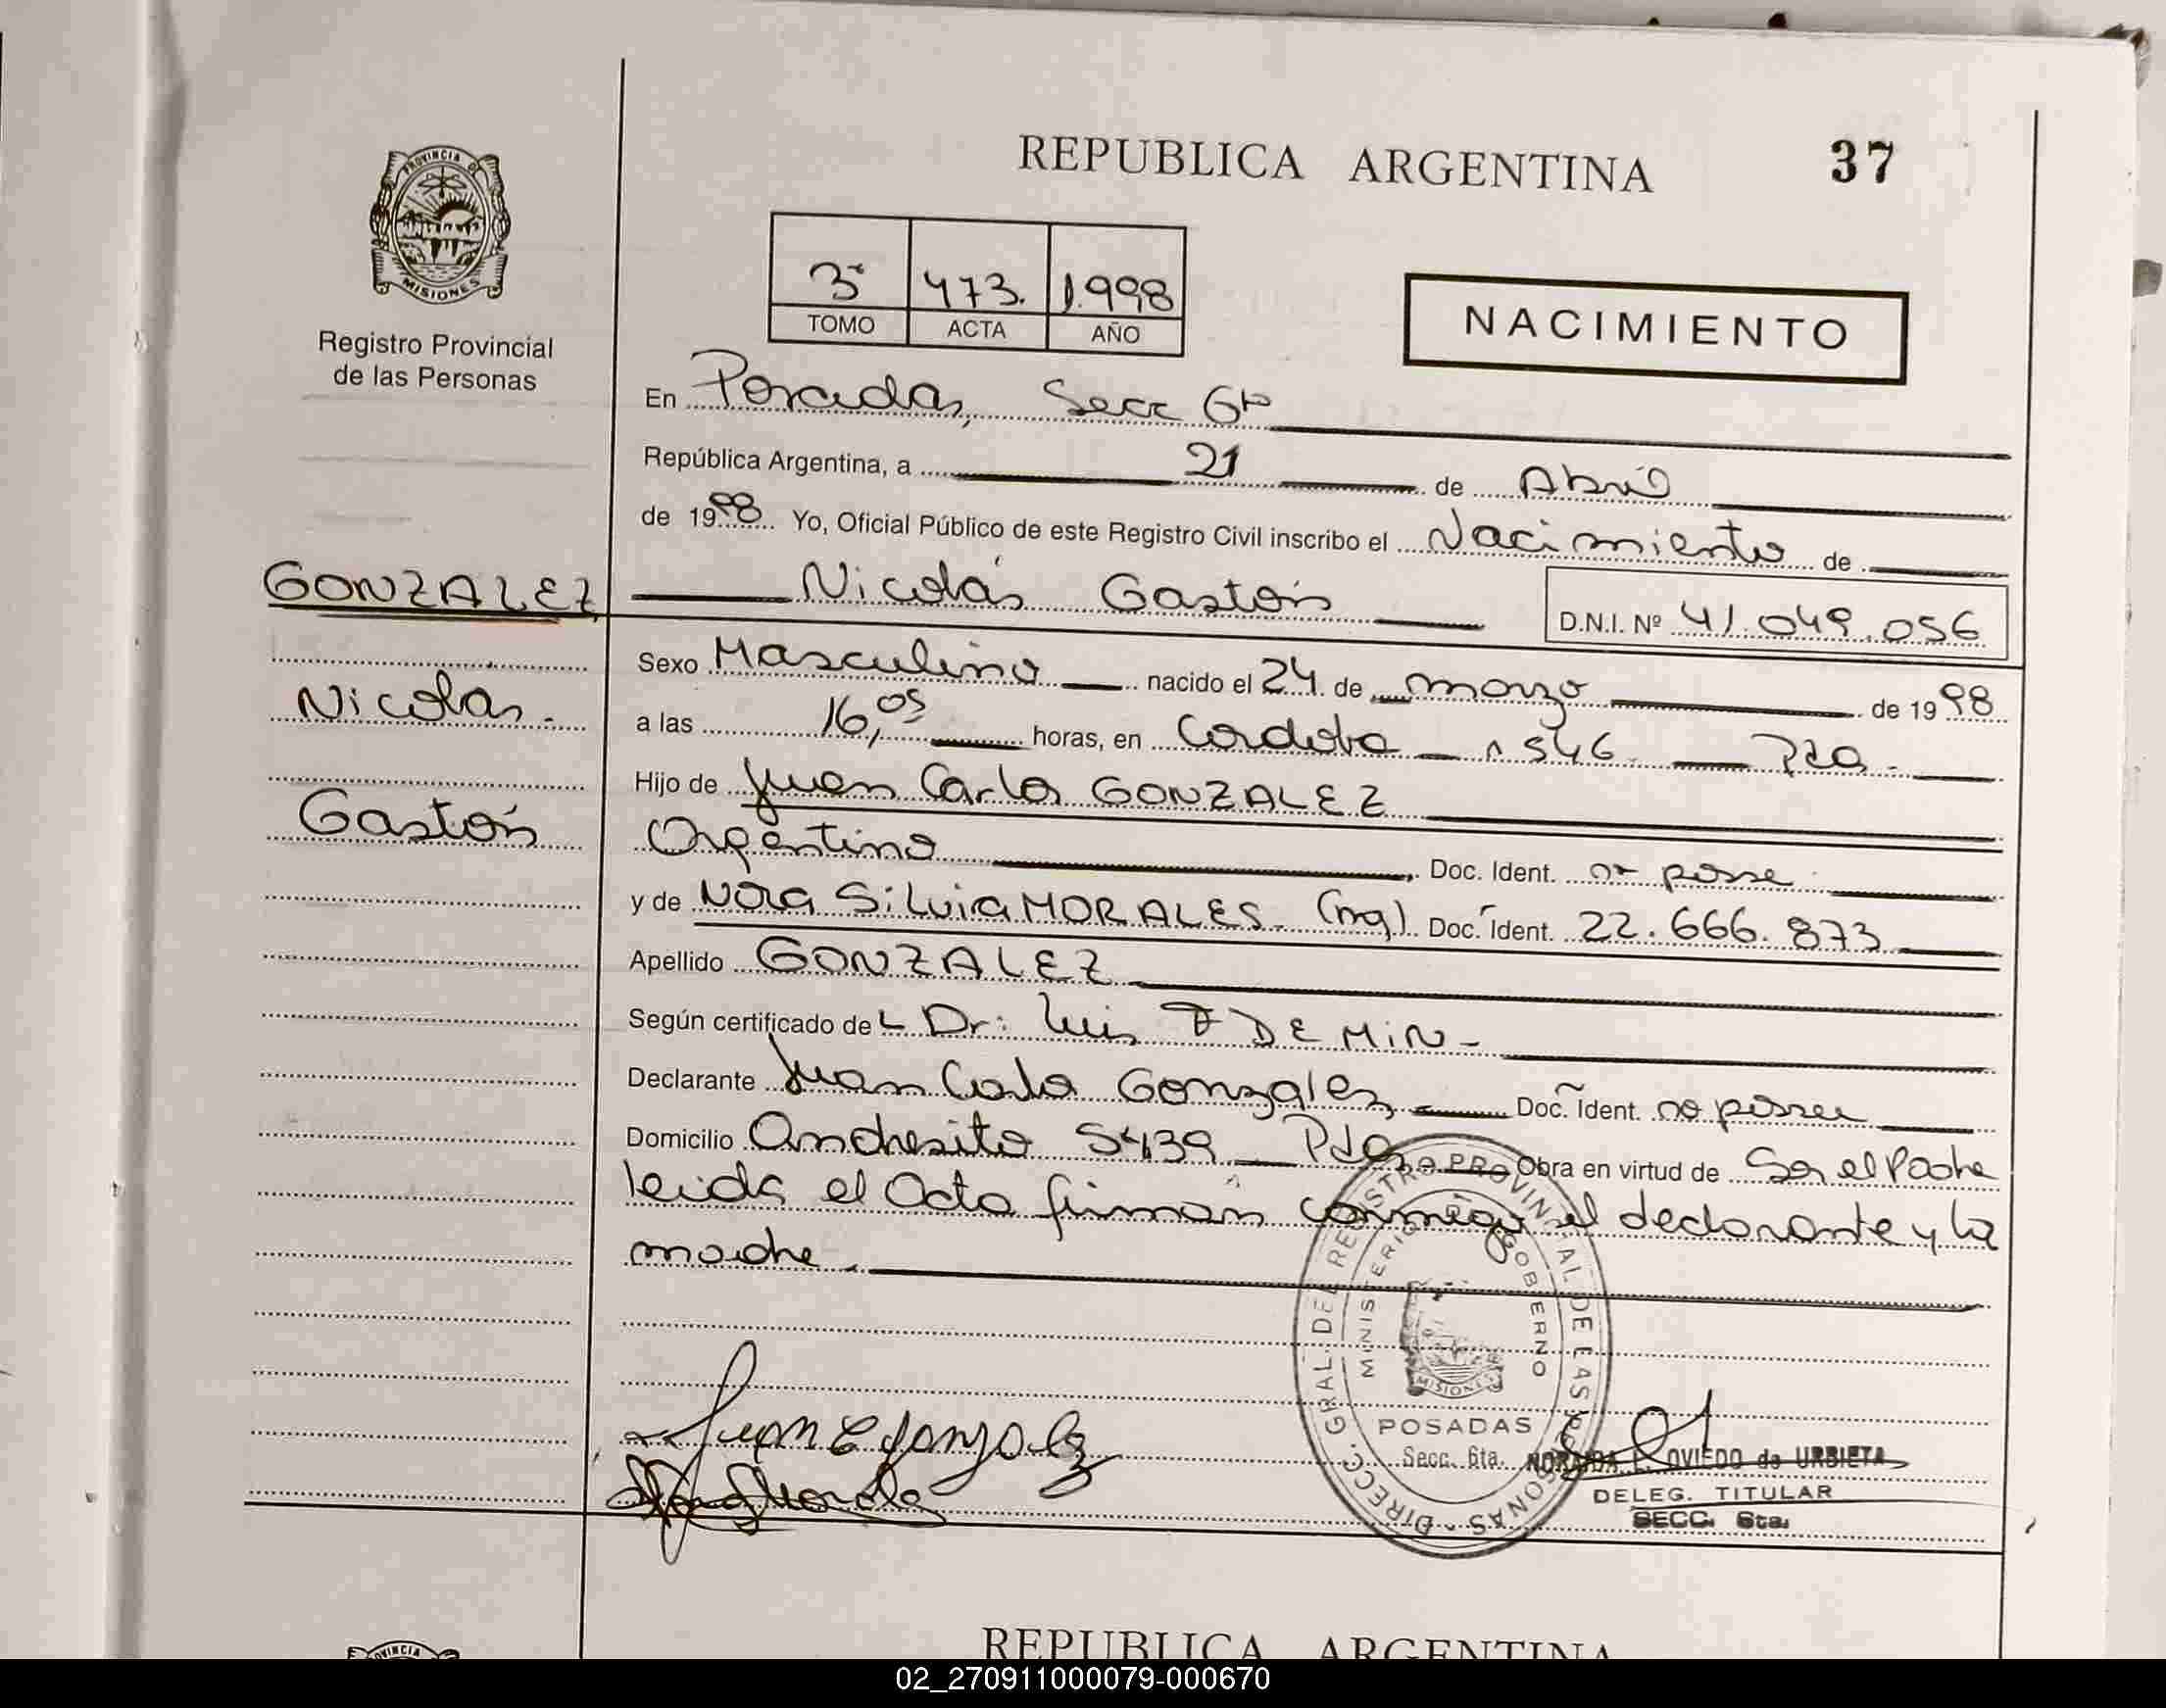 REPUBLICA ARGENTINA
37
PROVINCIA DE
MISIONES
Registro Provincial
de las Personas
3º 473. 1.998
TOMO ACTA AÑO
NACIMIENTO
En Posadas, Secc 6ta
República Argentina, a 21 de Abril
de 1998 Yo, Oficial Público de este Registro Civil inscribo el Nacimiento de
GONZALEZ Nicolás Gastón D.N.I. Nº 41.049.056
Sexo Masculino nacido el 24 de marzo de 1998
Nicolás.
a las 16,05 horas, en Cordoba n 546. Pdas.
Hijo de Juan Carlos GONZALEZ
Gastón
Argentino Doc. Ident. no posee
y de Nora Silvia MORALES. (Arg) Doc. Ident. 22.666.873
Apellido GONZALEZ
Según certificado de L Dr: Luis DEMiN-
Declarante Juan Carlos Gonzalez Doc. Ident. no posee
Domicilio Andresito 5439 Pdas Obra en virtud de Ser el Padre
leida el Acta firman conmigo el declarante y la
madre.
DIRECC. GRAL. DEL REGISTRO PROVINCIAL DE LAS PERSONAS
MINISTERIO GOBIERNO
MISIONES
POSADAS
Secc. 6ta.
Juan C Gonzalez
OVIEDO de URBIETA
DELEG. TITULAR
SECC. 6ta.
REPUBLICA ARGENTINA
02_270911000079-000670